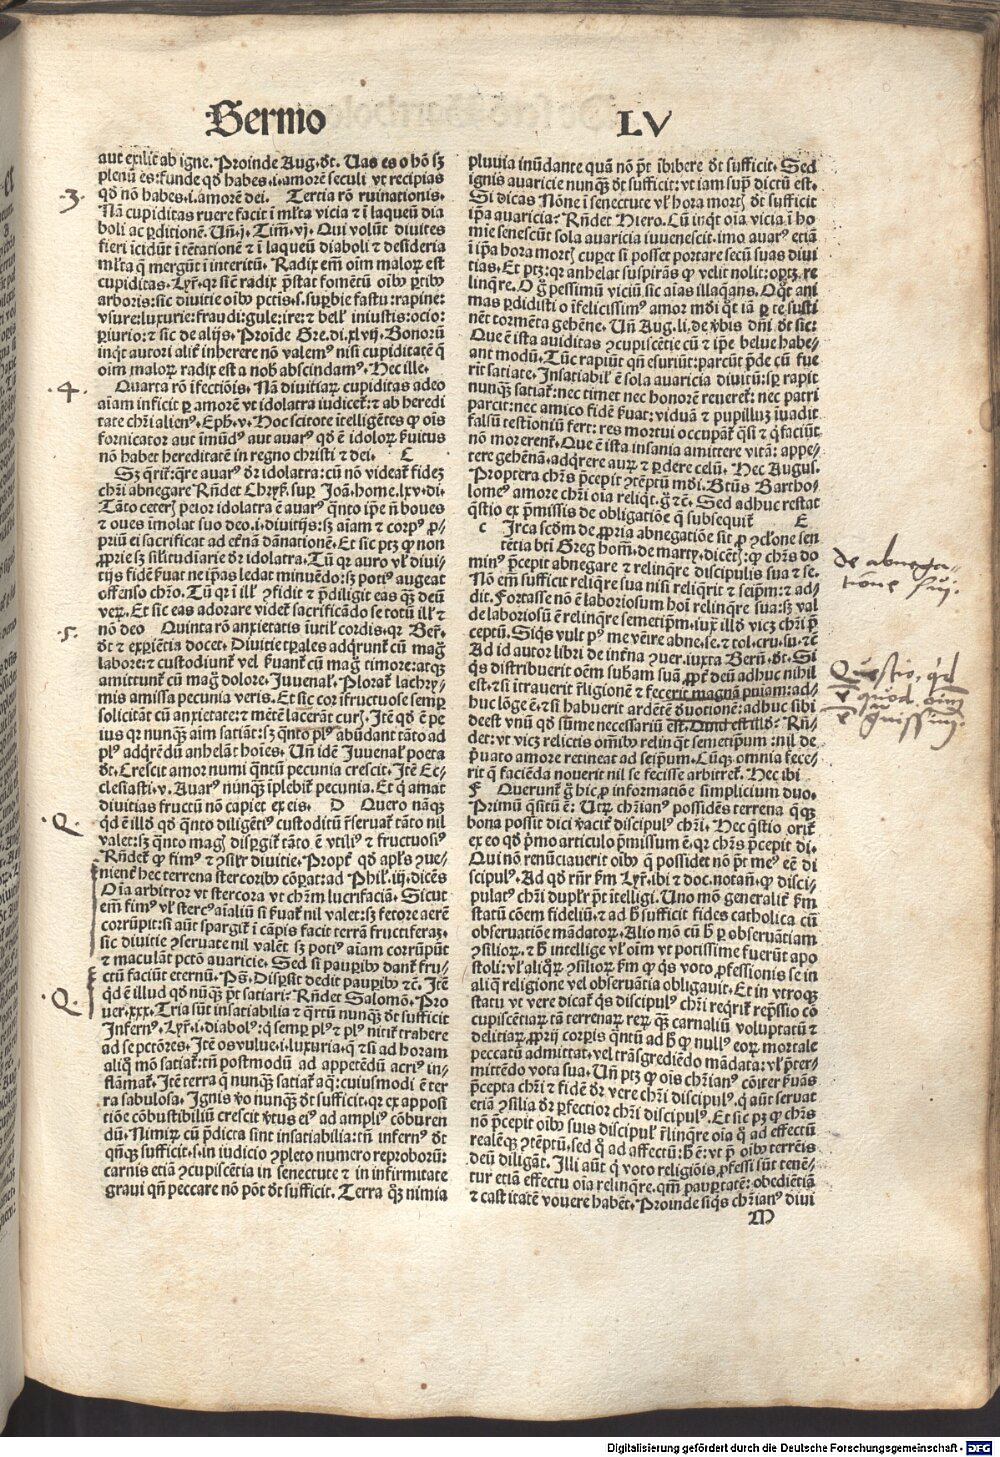 Sermo LV
aut exilit ab igne. Proinde Aug. dt. Uas es o hō sꝫ
plenū es: funde qd habes .i. amorē seculi vt recipias
qd nō habes .i. amorē dei. Tertia rō ruinationis.
3.
Nā cupiditas ruere facit ī ml̄ta vicia ⁊ ī laqueū dia
boli ac ꝑditionē. Un̄ .j. Tim. vj. Qui volūt divites
fieri īcidūt ī tētationē ⁊ ī laqueū diaboli ⁊ desideria
ml̄ta q̄ mergūt ī interitū. Radix em̄ oim̄ malorꝝ est
cupiditas. Lyr̄. qr sic̄ radix p̄stat fomētū oib᷒ ꝑtib᷒
arboris: sic divitie oib᷒ pctis .s. suꝑbie fastu: rapine:
vsure: luxurie: fraudi: gule: ire: ⁊ bell᷒ iniustis: ocio:
ꝑiurio: ⁊ sic de alijs. Proīde Gre. di. xlvij. Bonorū
inqt autori alit̄ inherere nō valem᷒ nisi cupiditatē q̄
oim̄ malorꝝ radix est a nob᷒ abscindam᷒. Hec ille.
4.
Quarta rō īfectiōis. Nā divitiarꝝ cupiditas adeo
aīam inficit ꝑ amorē vt idolatra iudicet̄: ⁊ ab heredi
tate chr̄i alien᷒. Eph̄. v. Hoc scitote ītelligētes ꝙ oīs
fornicator aut īmūd᷒ aut avar᷒ qd ē idolorꝝ ẜuitus
nō habet hereditatē in regno christi ⁊ dei. C
Sꝫ qrit̄: qre avar᷒ dr̄ idolatra: cū nō videat̄ fidez
chr̄i abnegare Rn̄det Chryẜ. suꝑ Joā. home. lxv. di.
Tāto ceter᷒ peior idolatra ē avar᷒ qnto ip̄e n̄ boves
⁊ oves īmolat suo deo .i. divitijs: sꝫ aīam ⁊ corp᷒ ꝓ-
priū ei sacrificat ad etn̄ā dānationē. Et sic ptꝫ ꝙ non
ꝓprie sꝫ sil̄itudiarie dr̄ idolatra. Tū qr auro vl̄ divi-
tijs fidē ẜuat ne ip̄as ledat minuēdo: sꝫ poti᷒ augeat
offenso chr̄o. Tū qr ī ill᷒ ꝯfidit ⁊ p̄diligit eas q̄ꝫ deū
verꝝ. Et sic eas adorare videt̄ sacrificādo se totū ill᷒ ⁊
5.
nō deo Quinta rō anxietatis īutil᷒ cordis. qr Ber̄.
dt ⁊ exꝑiētia docet. Divitie tꝑales adqrunt̄ cū mag᷒
labore: ⁊ custodiunt̄ vel ẜuant̄ cū mag᷒ timore: atqꝫ
amittunt̄ cū mag᷒ dolore. Juvenal᷒. Plorat̄ lachry-
mis amissa pecunia veris. Et sic cor īfructuose semꝑ
solicitāt cū anxietate: ⁊ mētē lacerāt cur᷒. Itē qd ē pe
ius qr nunqꝫ aīm satiāt: sꝫ qnto pl᷒ abūdant tāto ad
pl᷒ adqrēdū anhelāt hoīes. Un̄ idē Juvenal᷒ poeta
dt. Crescit amor numi qntū pecunia crescit. Itē Ec-
clesiasti. v. Avar᷒ nunqꝫ īplebit̄ pecunia. Et q̄ amat
divitias fructū nō capiet ex eis. D Quero nāqꝫ
Q.
qd ē illd qd qnto diligēti᷒ custoditū r̄servat̄ tāto nil
valet: sꝫ qnto mag᷒ disꝑgit̄ tāto ē vtili᷒ ⁊ fructuosi᷒
Rn̄det̄ ꝙ fim᷒ ⁊ ꝯsil̄r divitie. Propt̄ qd apl᷒s ꝯue-
nient̄ hec terrena stercorib᷒ cōꝑat: ad Phil᷒. iij. dicēs
Oīa arbitror vt stercora vt chr̄m lucrifaciā. Sicut
em̄ fim᷒ vl̄ sterc᷒ aīaliū si ẜuat̄ nil valet: sꝫ fetore aerē
corrūpit: si aūt spargit̄ ī cāpis facit terrā fructiferaꝫ.
sic divitie ꝯservate nil valēt sꝫ poti᷒ aīam corrūpūt
⁊ maculāt pctō avaricie. Sed si pauꝑib᷒ dant̄ fru-
ctū faciūt eternū. Ps̄. Disꝑsit dedit pauꝑib᷒ ⁊c̄. Itē
Q.
qd ē illud qd nūqꝫ p̄t satiari? Rn̄det Salomō. Pro
uer. xxx. Tria sūt insatiabilia ⁊ qrtū nunqꝫ dt sufficit
Infern᷒. Lyr̄. i. diabol᷒: q̄ semꝑ pl᷒ ⁊ pl᷒ nitit̄ trahere
ad se pctōres. Itē os vulue .i. luxuria. q̄ ⁊ si ad horam
aliq̄ mō satiat̄: tn̄ postmodū ad appetēdū acri᷒ in-
flāmat̄. Itē terra q̄ nunqꝫ satiat̄ aq̄: cuiusmodi ē ter
ra sabulosa. Ignis v̄o nunqꝫ dt sufficit. qr ex apposi
tiōe cōbustibiliū crescit v̄tus ei᷒ ad ampli᷒ cōburen
dū. Nimirꝝ cū p̄dicta sint insatiabilia: tn̄ infern᷒ dt
qn̄qꝫ sufficit .s. in iudicio ꝯpleto numero reproborū:
carnis etiā ꝯcupiscētia in senectute ⁊ in infirmitate
gravi qn̄ peccare nō pōt dt sufficit. Terra qꝫ nimia
pluvia inūdante quā nō p̄t ībibere dt sufficit. Sed
ignis avaricie nunqꝫ dt sufficit: vt iam sup̄ dictū est.
Si dicas Nōne ī senectute vl̄ hora mort᷒ dt sufficit
ip̄a avaricia? Rn̄det Hiero. Cū inqt oīa vicia ī ho
mīe senescūt sola avaricia iuvenescit. imo avar᷒ etiā
ī ip̄a hora mort᷒ cuꝑet si posset portare secū suas divi
tias. Et ptꝫ: qr anhelat suspirās ꝙ velit nolit: oꝑtꝫ re
linq̄re. O ḡ pessimū viciū sic aīas illaqans. O qt ani
mas ꝑdidisti o īfelicissim᷒ amor mdi qt iā ꝑ te susti
nēt tormēta gehēne. Un̄ Aug. li. de v̄bis dn̄i dt sic:
Que ē ista aviditas ꝯcupiscētie cū ⁊ ip̄e belue habe-
ant modū. Tūc rapiūt qn̄ esuriūt: parcūt p̄de cū fue
rit satiate. Insatiabil᷒ ē sola avaricia divitū: sꝑ rapit
nunqꝫ satiat̄: nec timet nec honorē reveret̄: nec patri
parcit: nec amico fidē ẜuat: viduā ⁊ pupilluꝫ īvadit
falsū testīoniū fert: res mortui occupat̄ qsi ⁊ q faciūt
nō morerent̄. Que ē ista insania amittere vitā: appe-
tere gehēnā. adqrere aurꝝ ⁊ ꝑdere celū. Hec Augus.
Propterea chr̄s p̄cepit ꝯtēptū mdi. Btūs Bartho-
lome᷒ amore chr̄i oīa reliqt. ḡ ⁊c̄. Sed adhuc restat
qstio ex p̄missis de obligatiōe q̄ subsequit̄ E
c Irca scdm de ꝓpria abnegatiōe sit ꝓ ꝯcl̄one sen
tētia bti Greg᷒ hom̄. de marty. dicēt᷒: ꝙ chr̄s do
min᷒ p̄cepit abnegare ⁊ relinqre discipulis sua ⁊ se.
Nō em̄ sufficit reliqre sua nisi reliqrit ⁊ seip̄m: ⁊ ad-
dit. Fortasse nō ē laboriosum hoī relinqre sua: sꝫ val
de laboriosū ē relinqre semetip̄m. iux̄ illd vicꝫ chr̄i p̄
ceptū. Siqs vult p᷒ me venire abne. se. ⁊ tol. cru. su. ⁊c̄
Ad id autor libri de int̄na ꝯuer. iuxta Bern̄. dt. Si
qs distribuerit oēm subam suā ꝓpt̄ deū adhuc nihil
est. ⁊ si ītrauerit r̄ligionē ⁊ fecerit magnā pn̄iam: ad-
huc lōge ē. ⁊ si habuerit ardētē d̄uotionē: adhuc sibi
deest vnū qd sūme necessariū est. Quid est illd? Rn̄-
det: vt vicꝫ relictis om̄ib᷒ relinq̄t semetip̄sum: nil de
p̄uato amore retineat ad seip̄sum. Cūqꝫ omnia fece-
rit q̄ faciēda noverit nil se fecisse arbitret̄. Hec ibi
F Querunt̄ ḡ hic ꝓ informatiōe simplicium duo.
Primū qsitū ē: Utrꝝ chr̄ian᷒ possidēs terrena q̄qꝫ
bona possit dici v̄acit᷒ discipul᷒ chr̄i. Hec qstio orit̄
ex eo qd p̄mo articulo p̄missum ē. qr chr̄s p̄cepit di.
Qui nō renūciaverit oib᷒ q̄ possidet nō p̄t me᷒ eē di
scipul᷒. Ad qd rn̄r ẜm Lyr̄. ibi ⁊ doc. notan̄. ꝙ disci-
pulat᷒ chr̄i dupl̄r p̄t ītelligi. Uno mō generalit̄ ẜm
statū cōem fideliū. ⁊ ad h̄ sufficit fides catholica cū
observatiōe mādatorꝝ. Alio mō cū h̄ ꝑ observātiam
ꝯsiliorꝝ. ⁊ h̄ intellige vl̄ oim̄ vt potissime fuerūt apo
stoli: vl̄ aliqrꝝ ꝯsiliorꝝ ẜm ꝙ qs voto ꝓfessionis se in
aliq̄ religione vel observātia obligauit. Et in vtroqꝫ
statu vt vere dicat̄ qs discipul᷒ chr̄i reqrit̄ rep̄ssio cō
cupiscētiarꝝ tā terrenarꝝ rerꝝ qꝫ carnaliū voluptatū ⁊
delitiarꝝ, ꝓprij corꝑis qntū ad h̄ ꝙ nullꝰ eorꝝ mortale
peccatū admittat. vel trāsgrediēdo mādata: vl̄ p̄ter-
mittēdo vota sua. Un̄ ptꝫ ꝙ oīs chr̄ian᷒ cōiter ẜuās
p̄cepta chr̄i ⁊ fidē dr̄ vere chr̄i discipul᷒. q̄ aūt servat
etiā ꝯsilia dr̄ ꝑfectior chr̄i discipul᷒. Et sic pꝫ ꝙ chr̄s
nō p̄cepit oib᷒ suis discipul᷒ r̄linqre oīa q̄ ad effectū
realēqꝫ ꝯtēptū. sed q̄ ad affectū: h̄ ē: vt p̄ oib᷒ terreīs
deū diligāt. Illi aūt q̄ voto religiōis ꝓfessi sūt tenē-
tur etiā effectu oīa relinqre. qm̄ pauꝑtatē: obediētiā
⁊ castitatē vovere habēt. Proinde siqs chr̄ian᷒ divi
M
de abnega-
tione sui.
Questio, qd
Digitalisierung gefördert durch die Deutsche Forschungsgemeinschaft - DFG